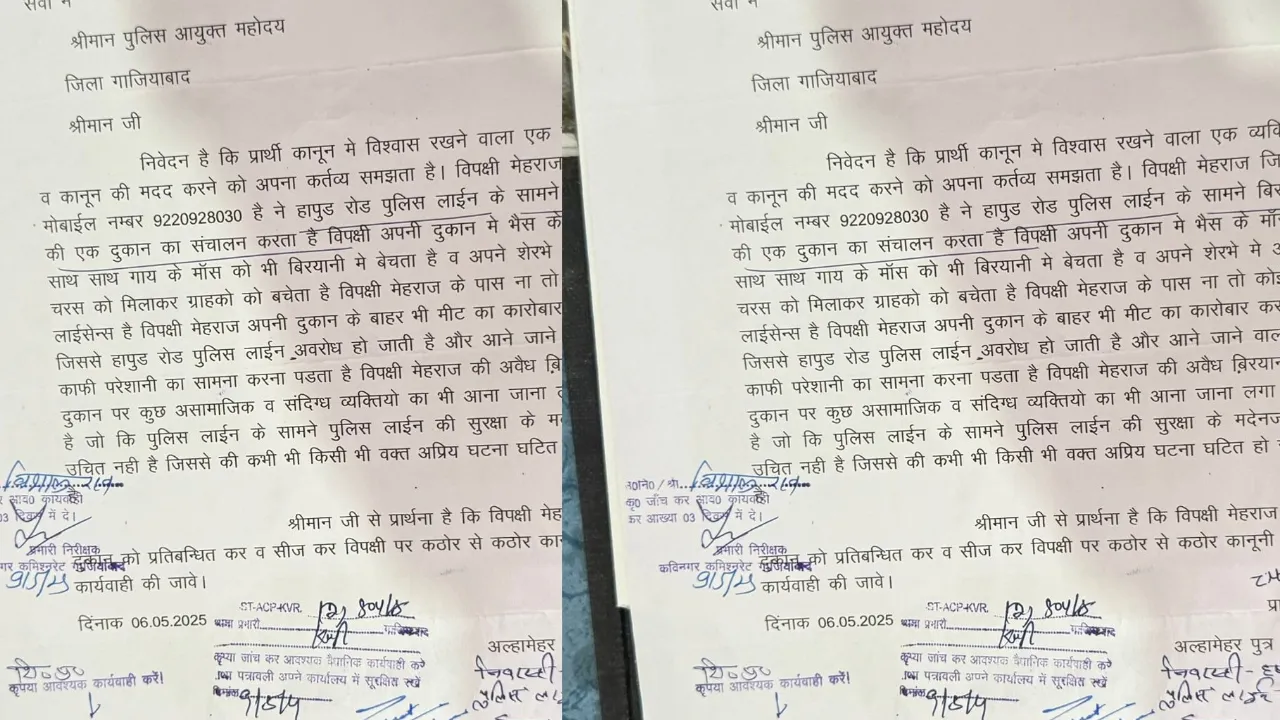 सेवा में
श्रीमान पुलिस आयुक्त महोदय
जिला गाजियाबाद
श्रीमान जी
निवेदन है कि प्रार्थी कानून मे विश्वास रखने वाला एक
व कानून की मदद करने को अपना कर्तव्य समझता है। विपक्षी मेहराज
मोबाईल नम्बर 9220928030 है ने हापुड रोड पुलिस लाईन के सामने
की एक दुकान का संचालन करता है विपक्षी अपनी दुकान मे भैंस के
साथ साथ गाय के मॉस को भी बिरयानी मे बेचता है व अपने शेरभे
चरस को मिलाकर ग्राहको को बचेता है विपक्षी मेहराज के पास ना तो
लाईसेन्स है विपक्षी मेहराज अपनी दुकान के बाहर भी मीट का कारोबार
जिससे हापुड रोड पुलिस लाईन अवरोध हो जाती है और आने जाने
काफी परेशानी का सामना करना पडता है विपक्षी मेहराज की अवैध
दुकान पर कुछ असामाजिक व संदिग्ध व्यक्तियो का भी आना जाना
है जो कि पुलिस लाईन के सामने पुलिस लाईन की सुरक्षा के
उचित नही है जिससे की कभी भी किसी भी वक्त अप्रिय घटना घटित
03 दिवस में दे।
श्रीमान जी से प्रार्थना है कि विपक्षी
प्रभारी निरीक्षक
दुकान को प्रतिबन्धित कर व सीज कर विपक्षी पर कठोर से कठोर
कमिश्नरेट गाजियाबाद
कार्यवाही की जावे।
दिनांक 06.05.2025
ST-ACP-KVR.
थाना प्रभारी
अल्हामेहर
कृप्या जांच कर आवश्यक वैधानिक कार्यवाही करे
पत्रावली अपने कार्यालय में सूरक्षित रखें
कृपया आवश्यक कार्यवाही करें!
सेवा में
श्रीमान पुलिस आयुक्त महोदय
जिला गाजियाबाद
श्रीमान जी
निवेदन है कि प्रार्थी कानून मे विश्वास रखने वाला एक
व कानून की मदद करने को अपना कर्तव्य समझता है। विपक्षी मेहराज
मोबाईल नम्बर 9220928030 है ने हापुड रोड पुलिस लाईन के सामने
की एक दुकान का संचालन करता है विपक्षी अपनी दुकान मे भैंस के
साथ साथ गाय के मॉस को भी बिरयानी मे बेचता है व अपने शेरभे मे
चरस को मिलाकर ग्राहको को बचेता है विपक्षी मेहराज के पास ना तो
लाईसेन्स है विपक्षी मेहराज अपनी दुकान के बाहर भी मीट का कारोबार
जिससे हापुड रोड पुलिस लाईन अवरोध हो जाती है और आने जाने
काफी परेशानी का सामना करना पडता है विपक्षी मेहराज की अवैध
दुकान पर कुछ असामाजिक व संदिग्ध व्यक्तियो का भी आना जाना लगा
है जो कि पुलिस लाईन के सामने पुलिस लाईन की सुरक्षा के
उचित नही है जिससे की कभी भी किसी भी वक्त अप्रिय घटना घटित हो
कृ0 जाँच कर आव0 कार्यवाही
कर आख्या 03 दिवस में दे।
श्रीमान जी से प्रार्थना है कि विपक्षी मेहराज
प्रभारी निरीक्षक
दुकान को प्रतिबन्धित कर व सीज कर विपक्षी पर कठोर से कठोर कानूनी
कविनगर कमिश्नरेट गाजियाबाद
कार्यवाही की जावे।
दिनांक 06.05.2025
ST-ACP-KVR.
थाना प्रभारी
अल्हामेहर पुत्र
कृप्या जांच कर आवश्यक वैधानिक कार्यवाही करे
पत्रावली अपने कार्यालय में सूरक्षित रखें
कृपया आवश्यक कार्यवाही करें!